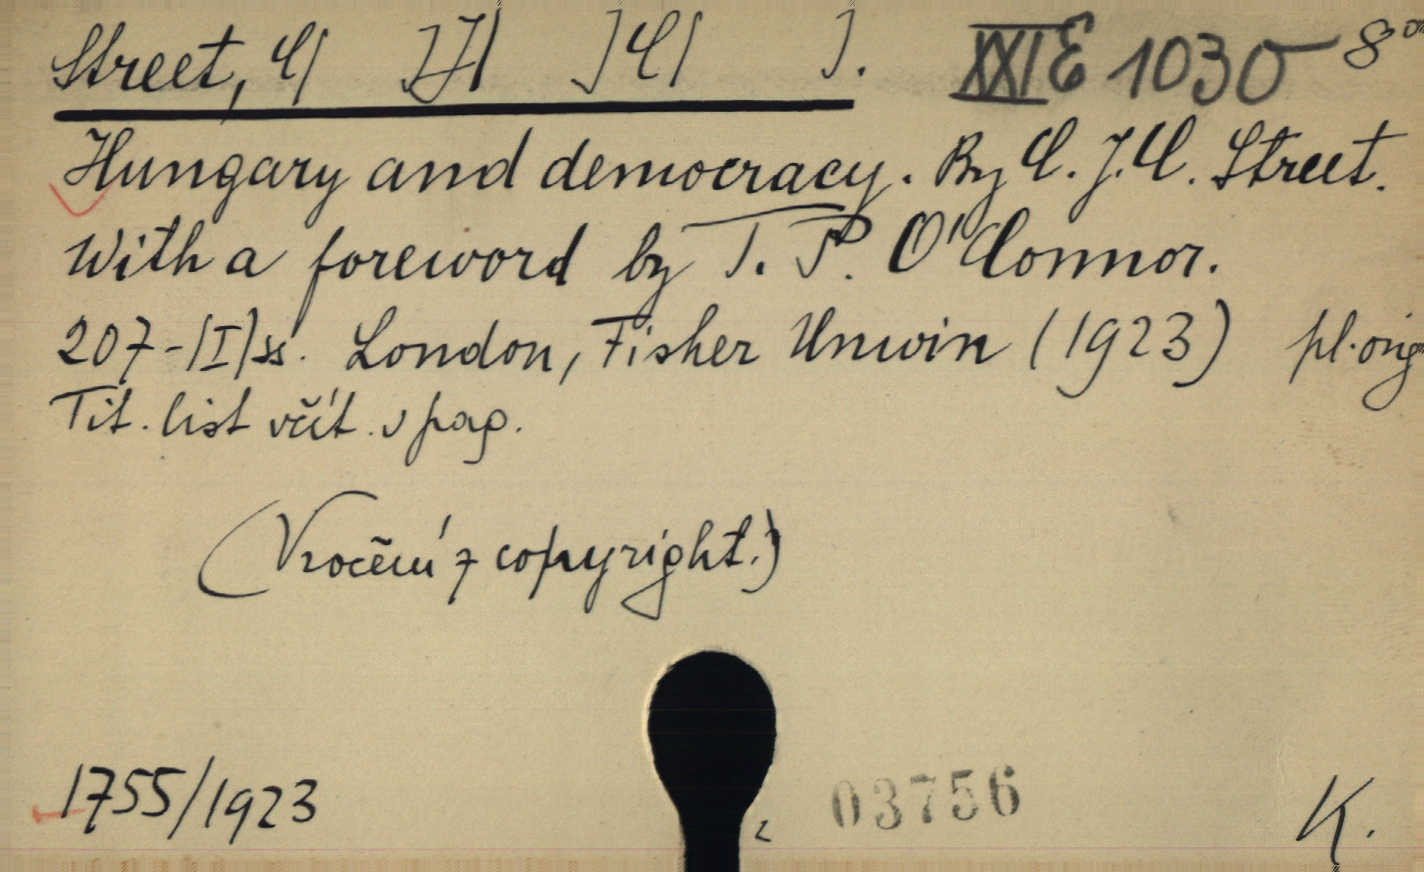 Street, C[   ]J[   ]C[   ]. XXI E 1030 8°
Hungary and democracy. By C. J. C. Street.
With a foreword by T. P. O'Connor.
207-[I] ss. London, Fisher Unwin (1923) pl. orig
Tit. list včít. v pag.
(Vročení z copyright.)
1755/1923
03756
K.